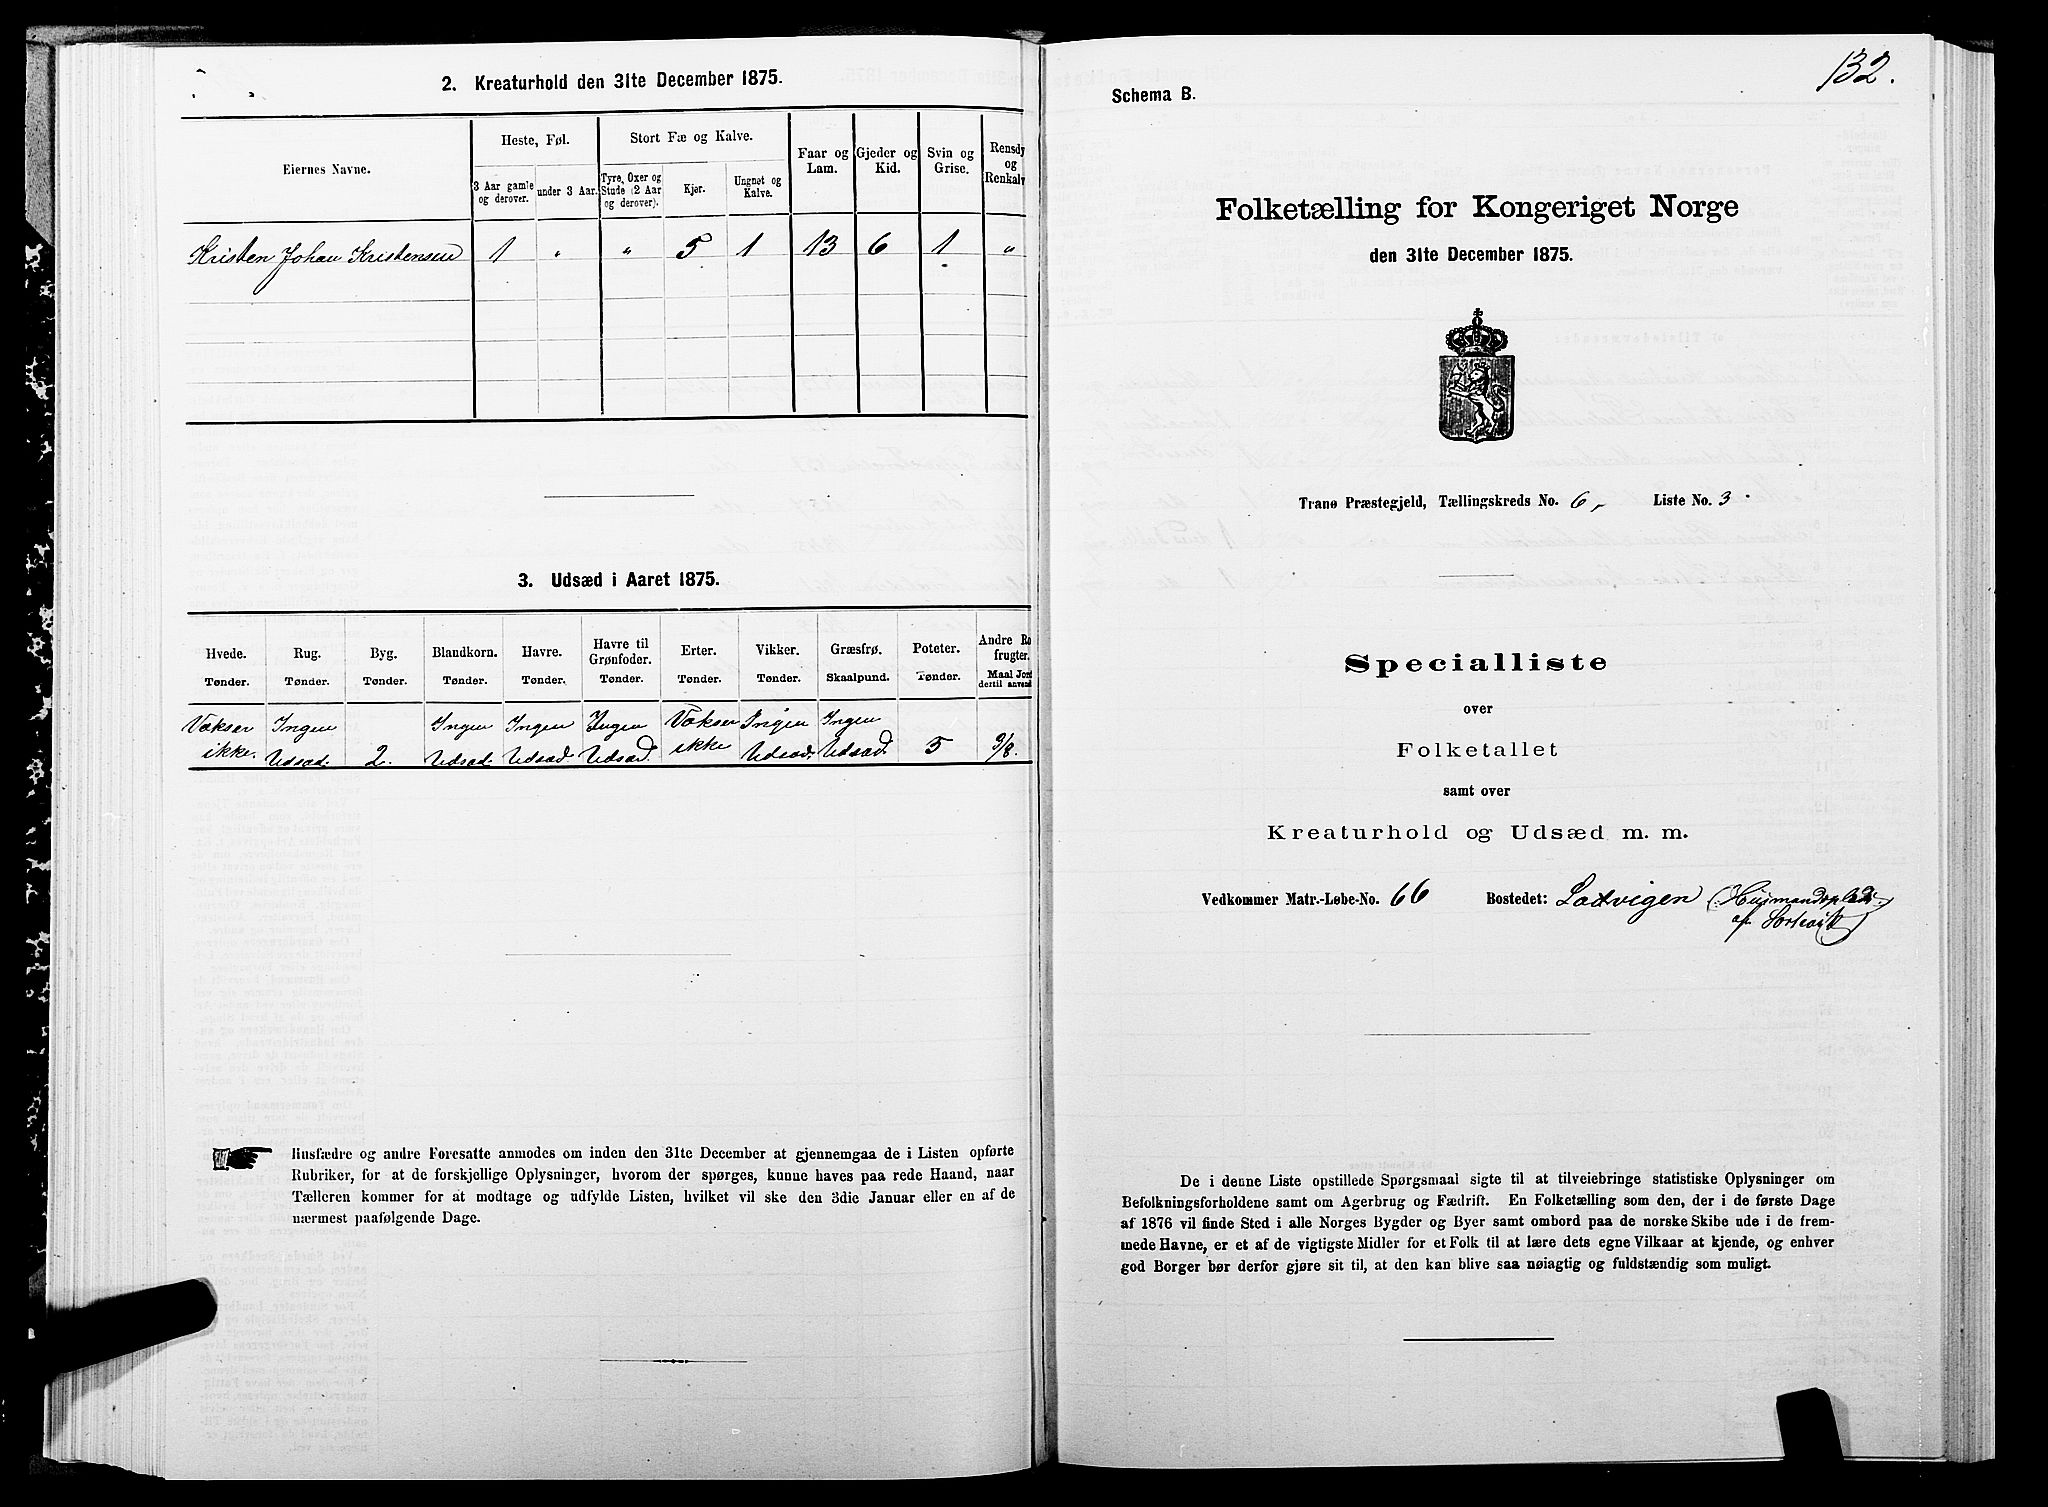 2. Kreaturhold den 31te December 1875.
Eiernes Navne.
Heste, Føl.
3 Aar gamle og derover.
under 3 Aar.
Stort Fæ og Kalve.
Tyre, Oxer og Stude (2 Aar og derover).
Kjør.
Ungnøt og Kalve.
Faar og Lam.
Gjeder og Kid.
Svin og Grise.
Rensdy og Renkalv
Kristen Johan Kristensen 1 " " 5 1 13 6 1 "
3. Udsæd i Aaret 1875.
Hvede. Rug. Byg. Blandkorn. Havre. Havre til Grønfoder. Erter. Vikker. Græsfrø. Poteter. Andre Ro frugter.
Tønder. Tønder. Tønder. Tønder. Tønder. Tønder. Tønder. Tønder. Skaalpund. Tønder. Maal Jord dertil anvend
Vokser Ingen Ingen Ingen Ingen Vokser Ingen Ingen
ikke. Udsæd. 2. Udsæd. Udsæd Udsæd. ikke Udsæd. Udsæd. 5 3/8.
Husfædre og andre Foresatte anmodes om inden den 31te December at gjennemgaa de i Listen opførte
Rubriker, for at de forskjellige Oplysninger, hvorom der spørges, kunne haves paa rede Haand, naar
Tælleren kommer for at modtage og udfylde Listen, hvilket vil ske den 3die Januar eller en af de
nærmest paafølgende Dage.
132.
Schema B.
Folketælling for Kongeriget Norge
den 31te December 1875.
Tranø Præstegjeld, Tællingskreds No. 6, Liste No. 3.
Specialliste
over
Folketallet
samt over
Kreaturhold og Udsæd m. m.
Vedkommer Matr.-Løbe-No. 66 Bostedet: Lodvigen (Husmandsplads
af Sortevik)
De i denne Liste opstillede Spørgsmaal sigte til at tilveiebringe statistiske Oplysninger om
Befolkningsforholdene samt om Agerbrug og Fædrift. En Folketælling som den, der i de første Dage
af 1876 vil finde Sted i alle Norges Bygder og Byer samt ombord paa de norske Skibe ude i de frem-
mede Havne, er et af de vigtigste Midler for et Folk til at lære dets egne Vilkaar at kjende, og enhver
god Borger bør derfor gjøre sit til, at den kan blive saa nøiagtig og fuldstændig som muligt.